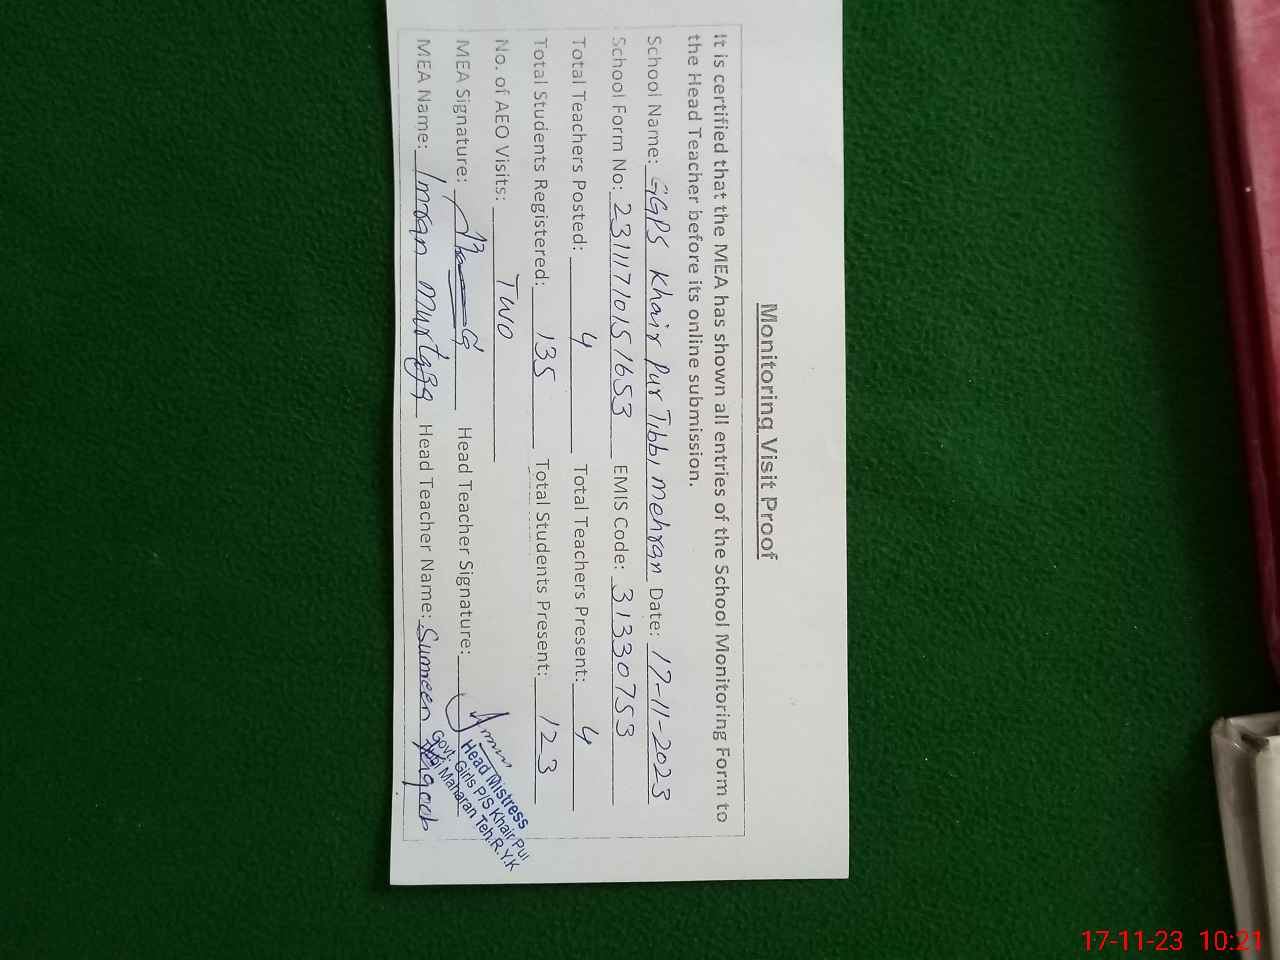 Monitoring Visit Proof
It is certified that the MEA has shown all entries of the School Monitoring Form to
the Head Teacher before its online submission.
School Name: GGPS Khair Pur Tibbi Mehran Date: 17-11-2023
School Form No: 23111710151653 EMIS Code: 31330753
Total Teachers Posted: 4 Total Teachers Present: 4
Total Students Registered: 135 Total Students Present: 123
No. of AEO Visits: Two
MEA Signature: Head Teacher Signature:
MEA Name: Imran Murtaza Head Teacher Name: Sumeen
Head Mistress
Govt. Girls P/S Khair Pur
Tibbi Maharan Teh.R.Y.K
17-11-23 10:21